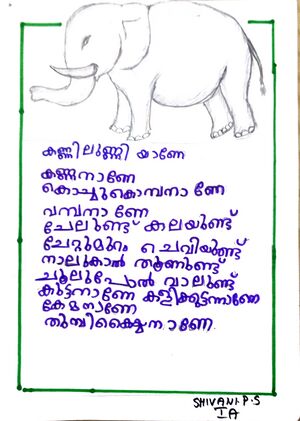 കണ്ണിലുണ്ണി യാണേ
കണ്ണനാണേ
കൊച്ചുകൊമ്പനാ ണേ
വമ്പനാ ണേ
ചേലുണ്ട് കലയുണ്ട്
ചേറ്റുമുറം ചെവിയുണ്ട്
നാലുകാൽ തൂണുണ്ട്
ചൂലുപോൽ വാലുണ്ട്
കുട്ടനാണേ കളിക്കുട്ടനാണേ
കേമനാണേ
തുമ്പിക്കൈനാണേ
SHIVANI.P.S
IA